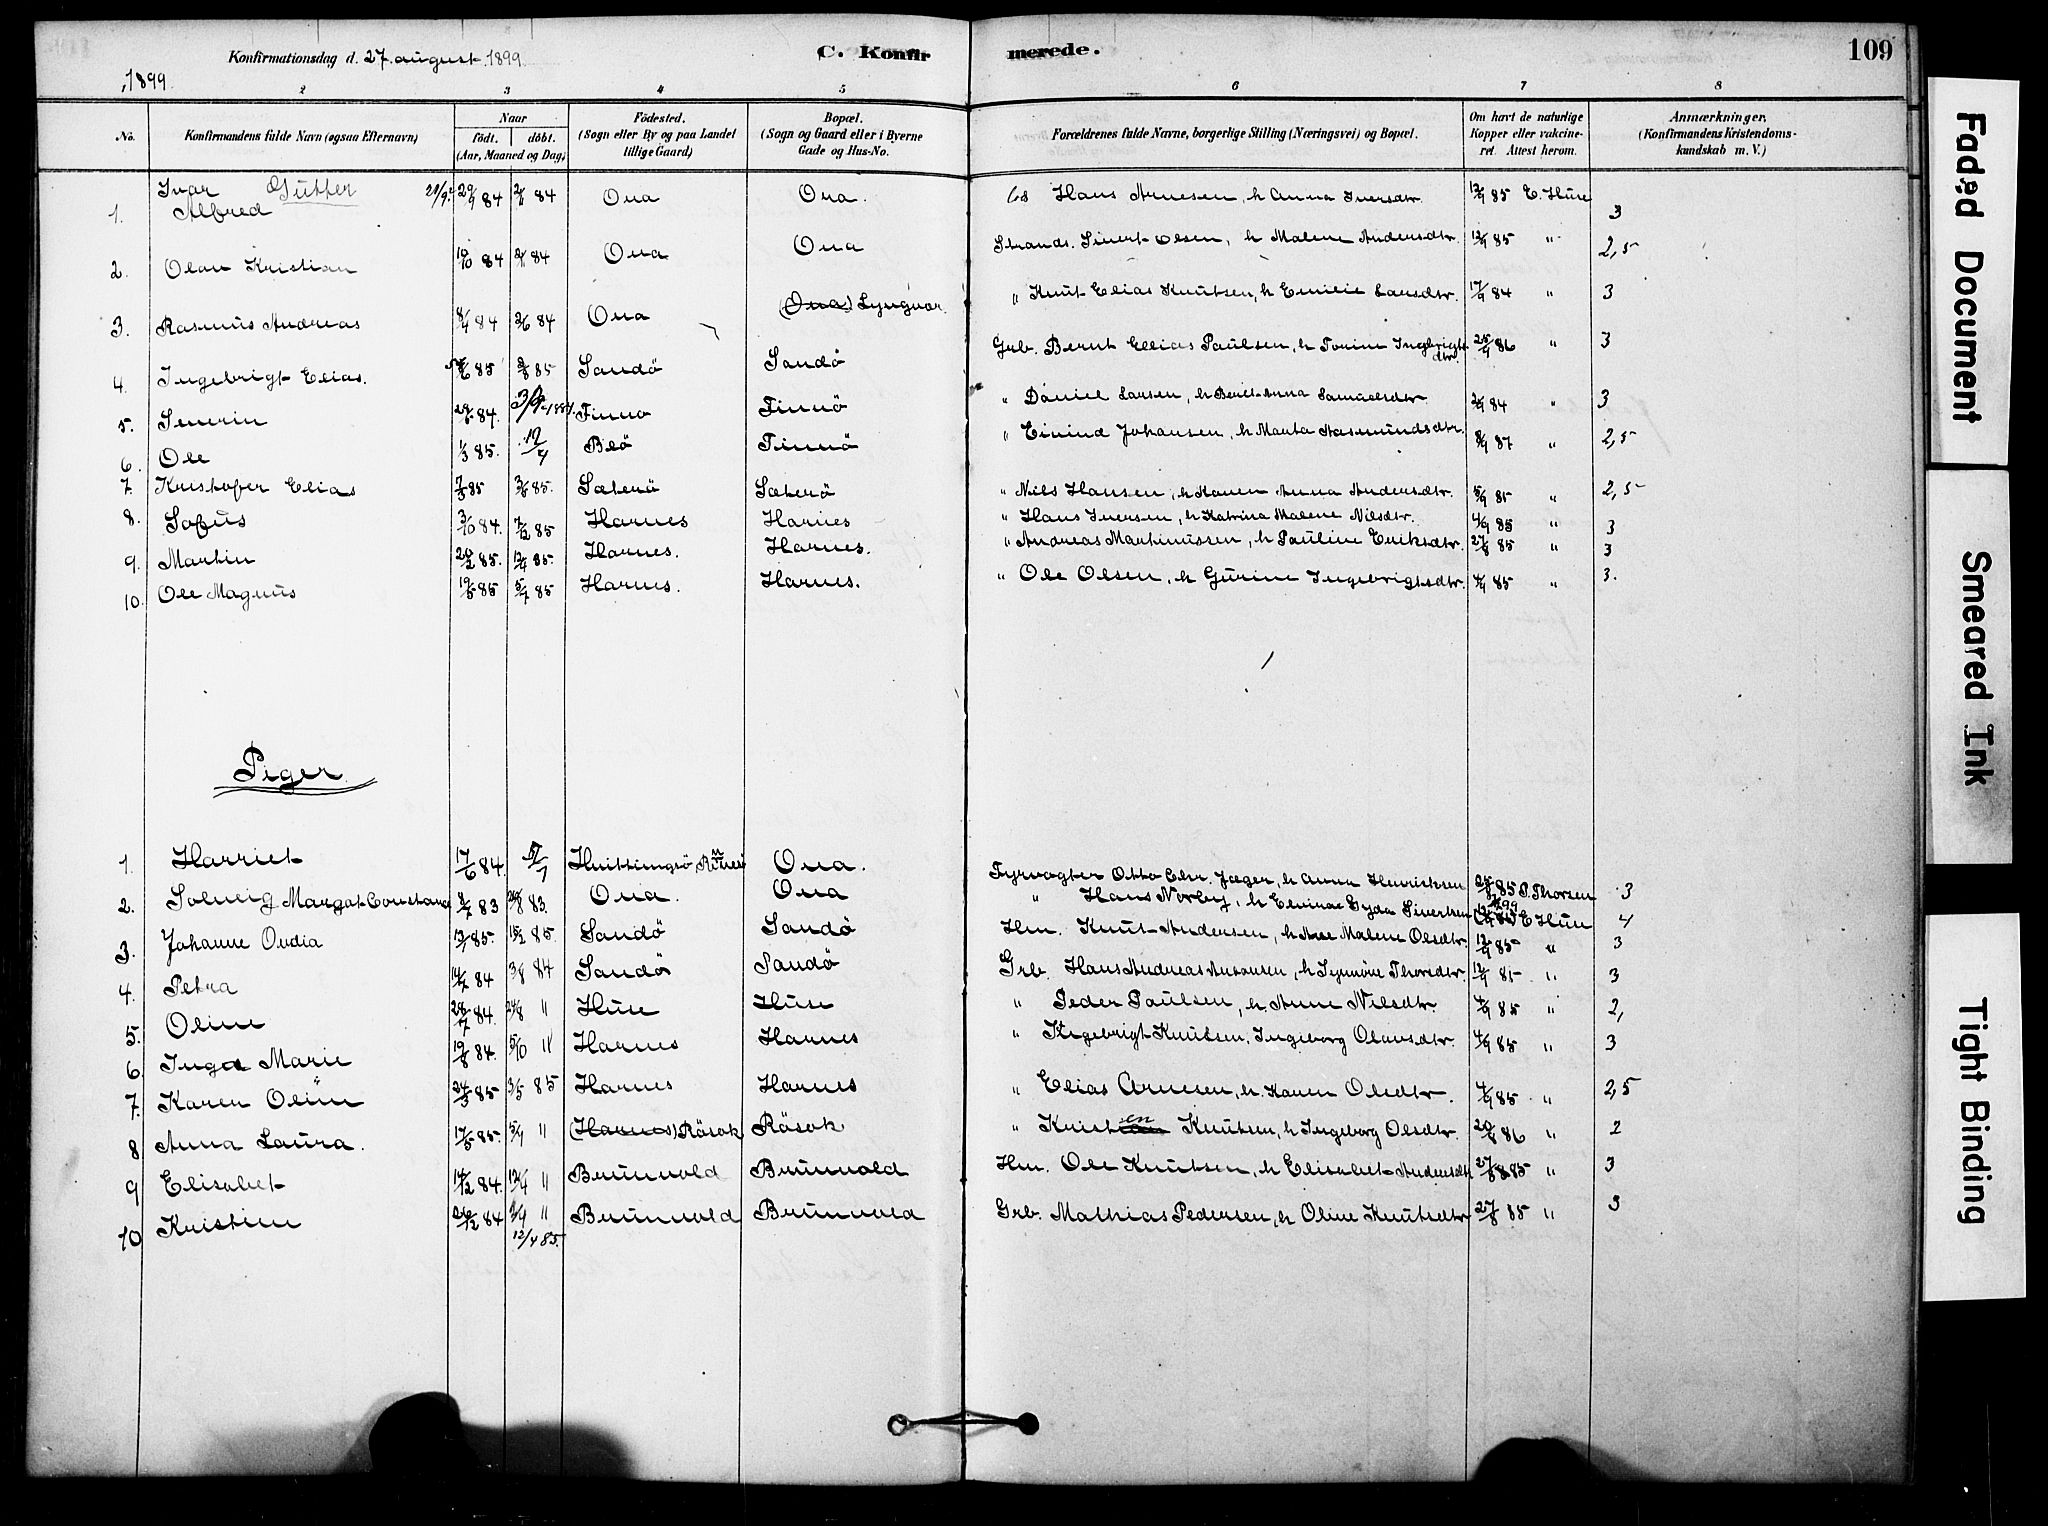 Konfirmationsdag d. 27. august 1899.
C. Konfirmerede.
109
1899.
2 3 4 5 6 7 8
No.
Konfirmandens fulde Navn (ogsaa Efternavn)
Naar
födt. döbt.
(Aar, Maaned og Dag)
Födested.
(Sogn eller By og paa Landet
tillige Gaard)
Bopæl.
(Sogn og Gaard eller i Byerne
Gade og Hus-No.
Forældrenes fulde Navne, borgerlige Stilling (Næringsvei) og Bopæl.
Om havt de naturlige
Kopper eller vakcine-
ret. Attest herom.
Anmærkninger.
(Konfirmandens Kristendoms-
kundskab m. V.)
Gutter
1. Ivar Alfred 84 84 Ona Ona. Hans Arnesen, h Anna Iversdtr. 12/9 85 E. Huse 3
2. Olau Kristian 19/10 84 84 Ona Ona Strands. Sivert Olsen, h Malene Andersdtr. 12/9 85 " 2,5
3. Rasmus Andreas 84 2/6 84 Ona (Ona) Lyngvær. " Knut Elias Knutsen, h Emilie Larsdtr. 17/9 84 " 3
4. Ingebrigt Elias. 85 85 Sandö Sandö Grb. Bernt Elias Paulsen, h Ingebrigtsdtr. 86 " 3
5. Severin 84. Finnö " Daniel Larsen, h Berit Anna Samuelsdtr. 84 " 3
6. Ole 1/3 85. 12/4 Finnö " Eivind Johansen, h Marta Rasmundsdtr. 87 " 2,5
7. Kristofer Elias 85 85. Sæterö Sæterö " Nils Hansen, h Karen Anna Andersdtr. 85 " 2,5
8. Sofus 3/10 84. 85 Harnes Harnes " Hans Iversen, h Katrina Malene Nilsdtr. 85 " 3
9. Martin 85. 12/4 85. Harnes. Harnes. " Andreas Martinussen, h Pauline Eriksdtr. 27/8 85 " 3
10. Ole Magnus 19/5 85 5/7 85 Harnes. Harnes. " Ole Olsen, h Gurine Ingebrigtsdtr. 85 " 3.
Piger
1. Harriet 17/6 84. Ona. Fyrvogter Otto Chr. Jæger, h Anna Henriksen 85 P. Thorsen 3
2. Solveig Margat Constance 83 83. Ona. Ona " Hans Norby, h Elvinae Gyda Sivertsen E Huse 4
3. Johanne Ovidia 85. 15/2 85 Sandö Sandö Hm. Knut Andersen, h Malene Olsdtr. 12/9 85 " 3
4. Petra 84 3/8 84 Sandö Sandö Grb. Hans Andreas h Synnöve Thorsdtr. 12/9 85 " 3
5. Oline 84. 24/8 " Huse Huse " Peder Paulsen, h. Anne Nilsdtr. 85 " 2,
6. Inga Marie 19/8 84. 5/10 " Harnes Harnes " Ingebrigt Knutsen, Ingeborg Olausdtr. 85 " 3
7. Karen Olin 24/3 85 3/5 85 Harnes Harnes " Elias Arnesen, h. Karen Olsdtr. 85 " 2,5
8 Anna Laura. 17/5 85. " (Harnes) Rösok Rösok " Kristen Knutsen, h Ingeborg Olsdtr. 86 " 2
9 Elisabet 14/12 84. 12/4 " Brunvold Brunvold Hm. Ole Knutsen, h Elisabet Andersdtr 27/8 85 " 3
10 Kristine 84 " Brunvold Brunvold Grb. Mathias Pedersen, h Oline Knutsdtr 27/8 85 " 3
12/4 85.
Faded Document
Smeared Ink
Tight Binding